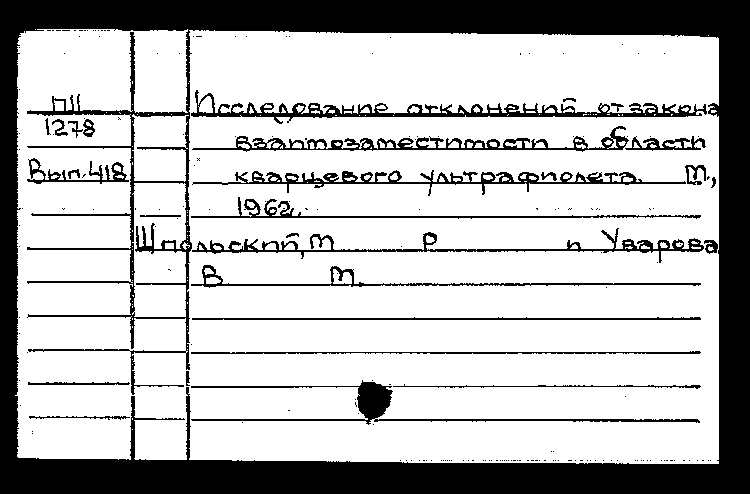 П11
1278
Вып.418
Исследование отклонений от закона
взаимозаместимости в области
кварцевого ультрафиолета. М.,
1962.
Шпольский, М Р и Уварова
В М.